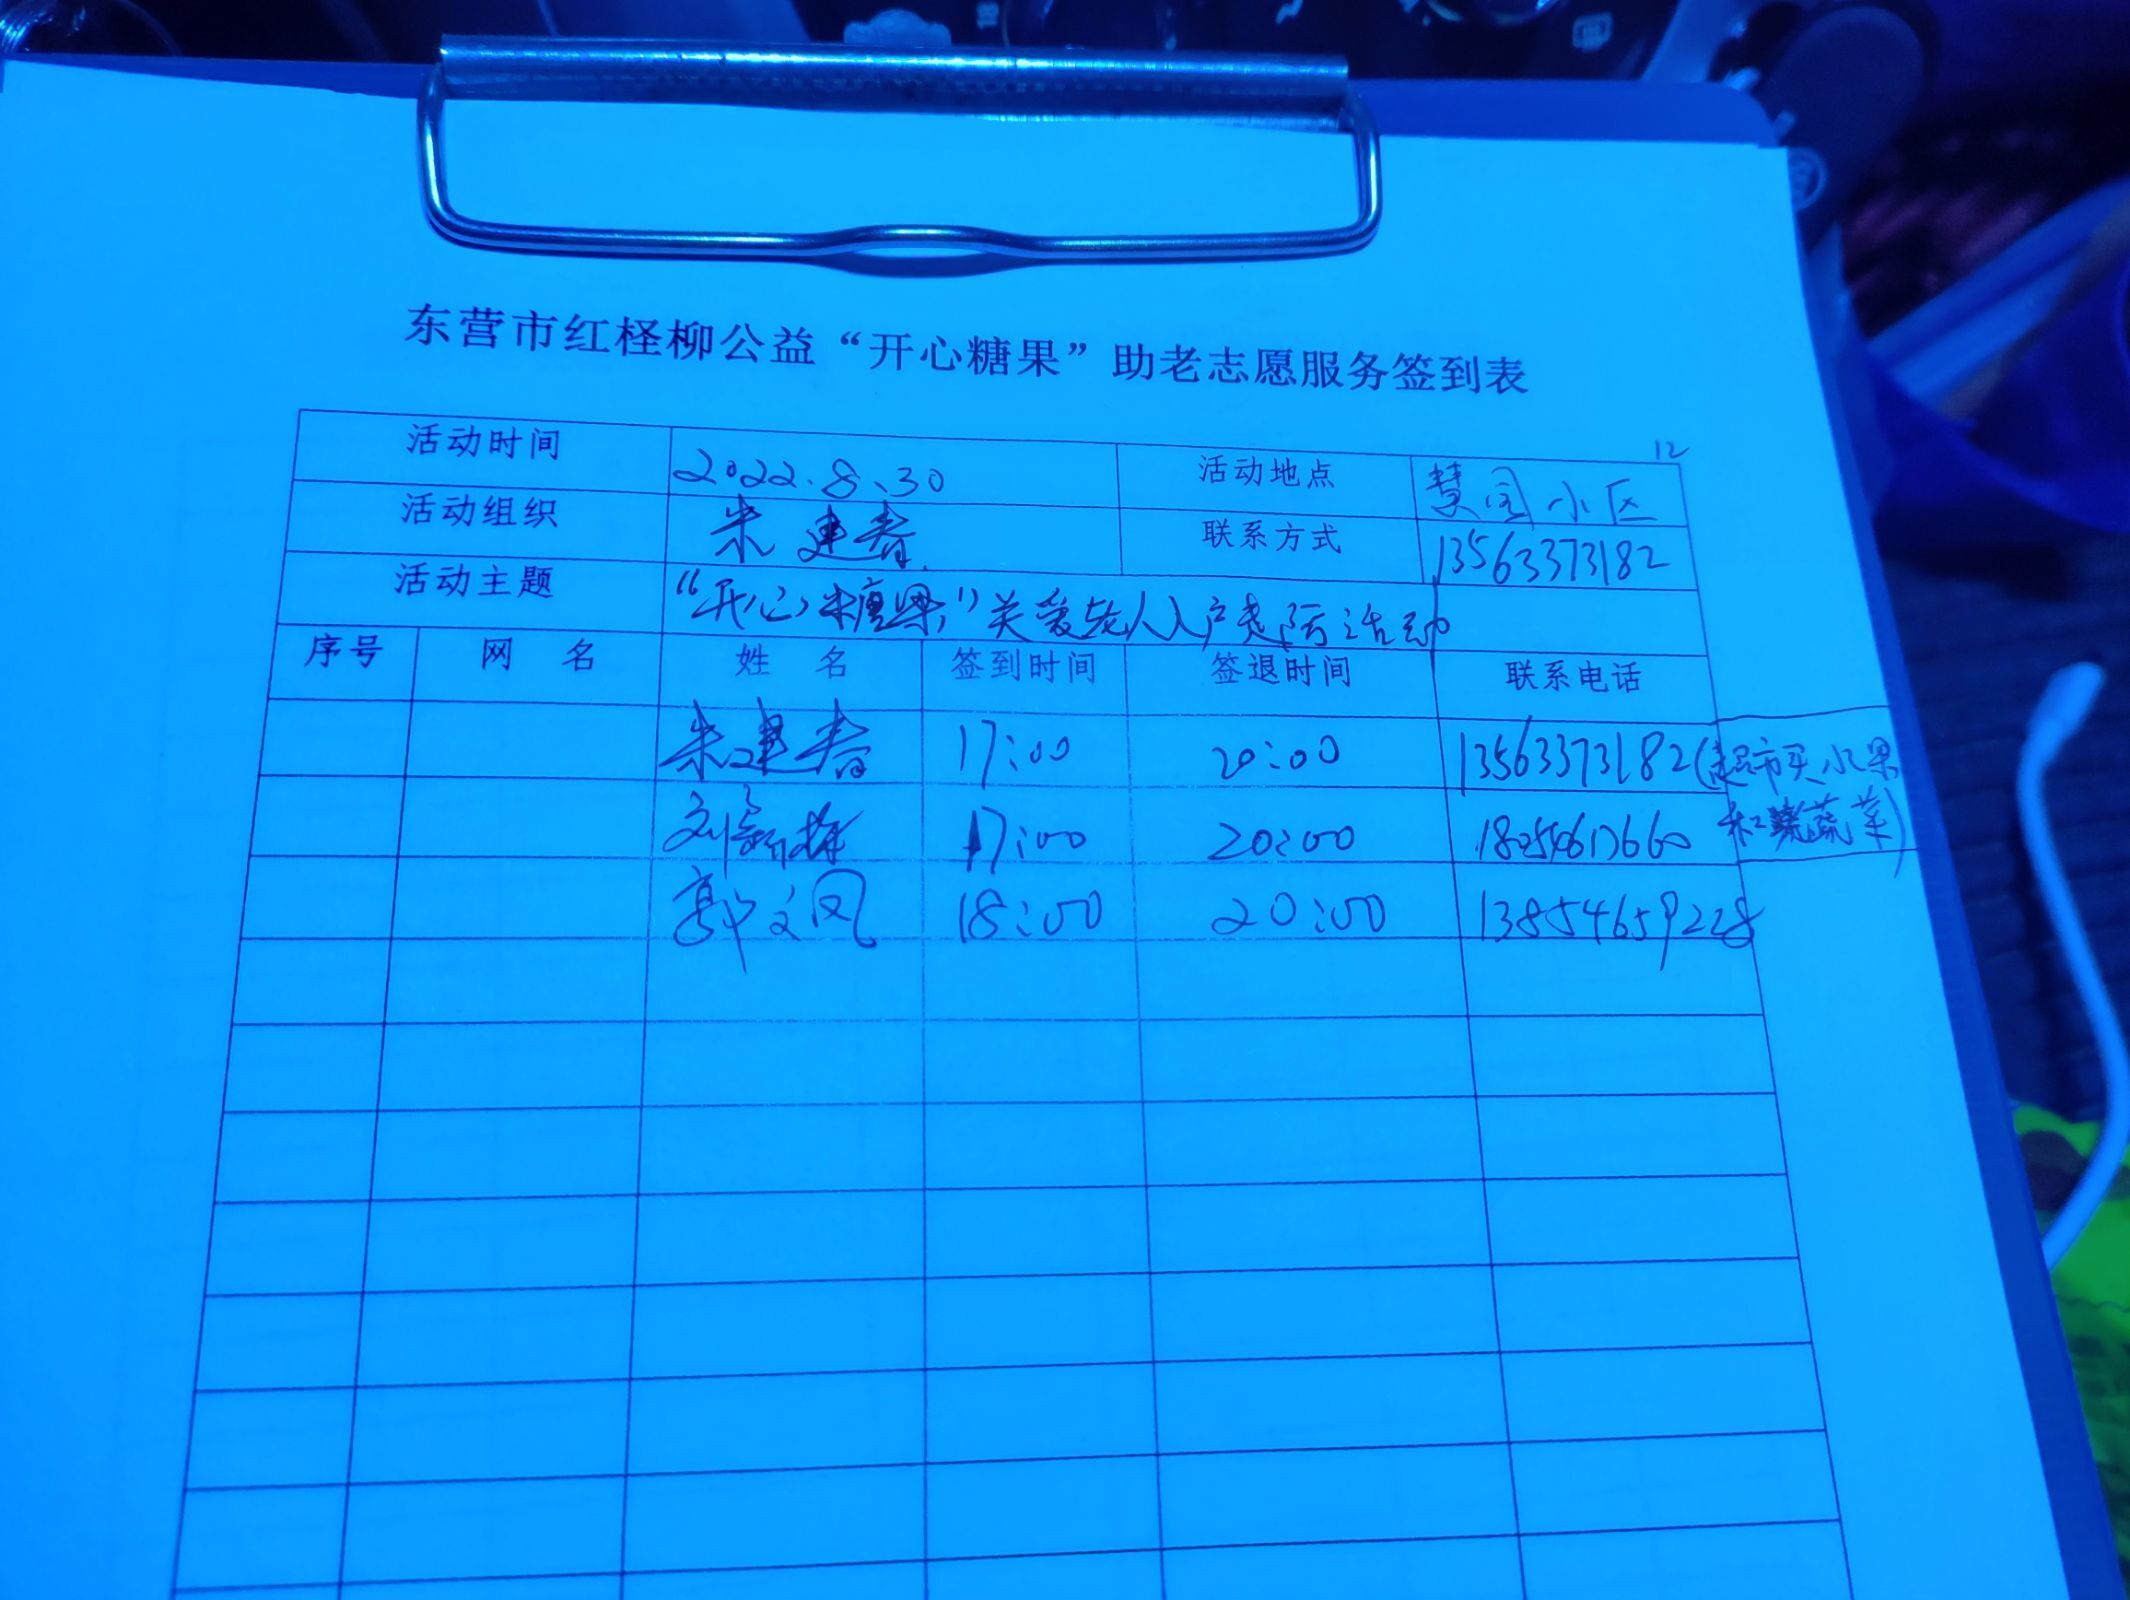 东营市红柽柳公益“开心糖果”助老志愿服务签到表
12
活动时间 2022.8.30 活动地点 小区
活动组织 朱建春 联系方式 13563373182
活动主题 “开心糖果”关爱老人入户走访活动
序号 网名 姓名 签到时间 签退时间 联系电话
朱建春 17:00 20:00 13563373182(超市买水果
和蔬菜)
刘 17:00 20:00
郭文凤 18:00 20:00 13854659228